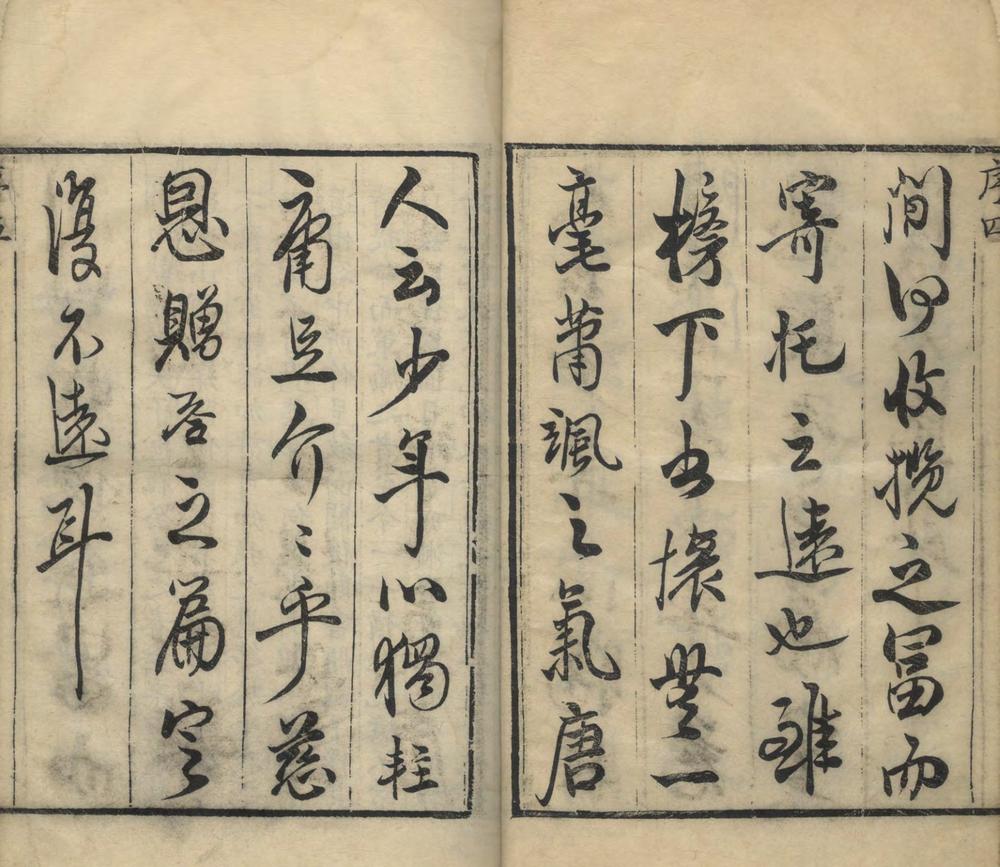 序四
間何收攬之富而
寄托之遠也雖
下壞無一
毫蕭颯之氣唐
人云少年心獨
庸足介〻乎慈
恩贈答之篇定
復不遠耳